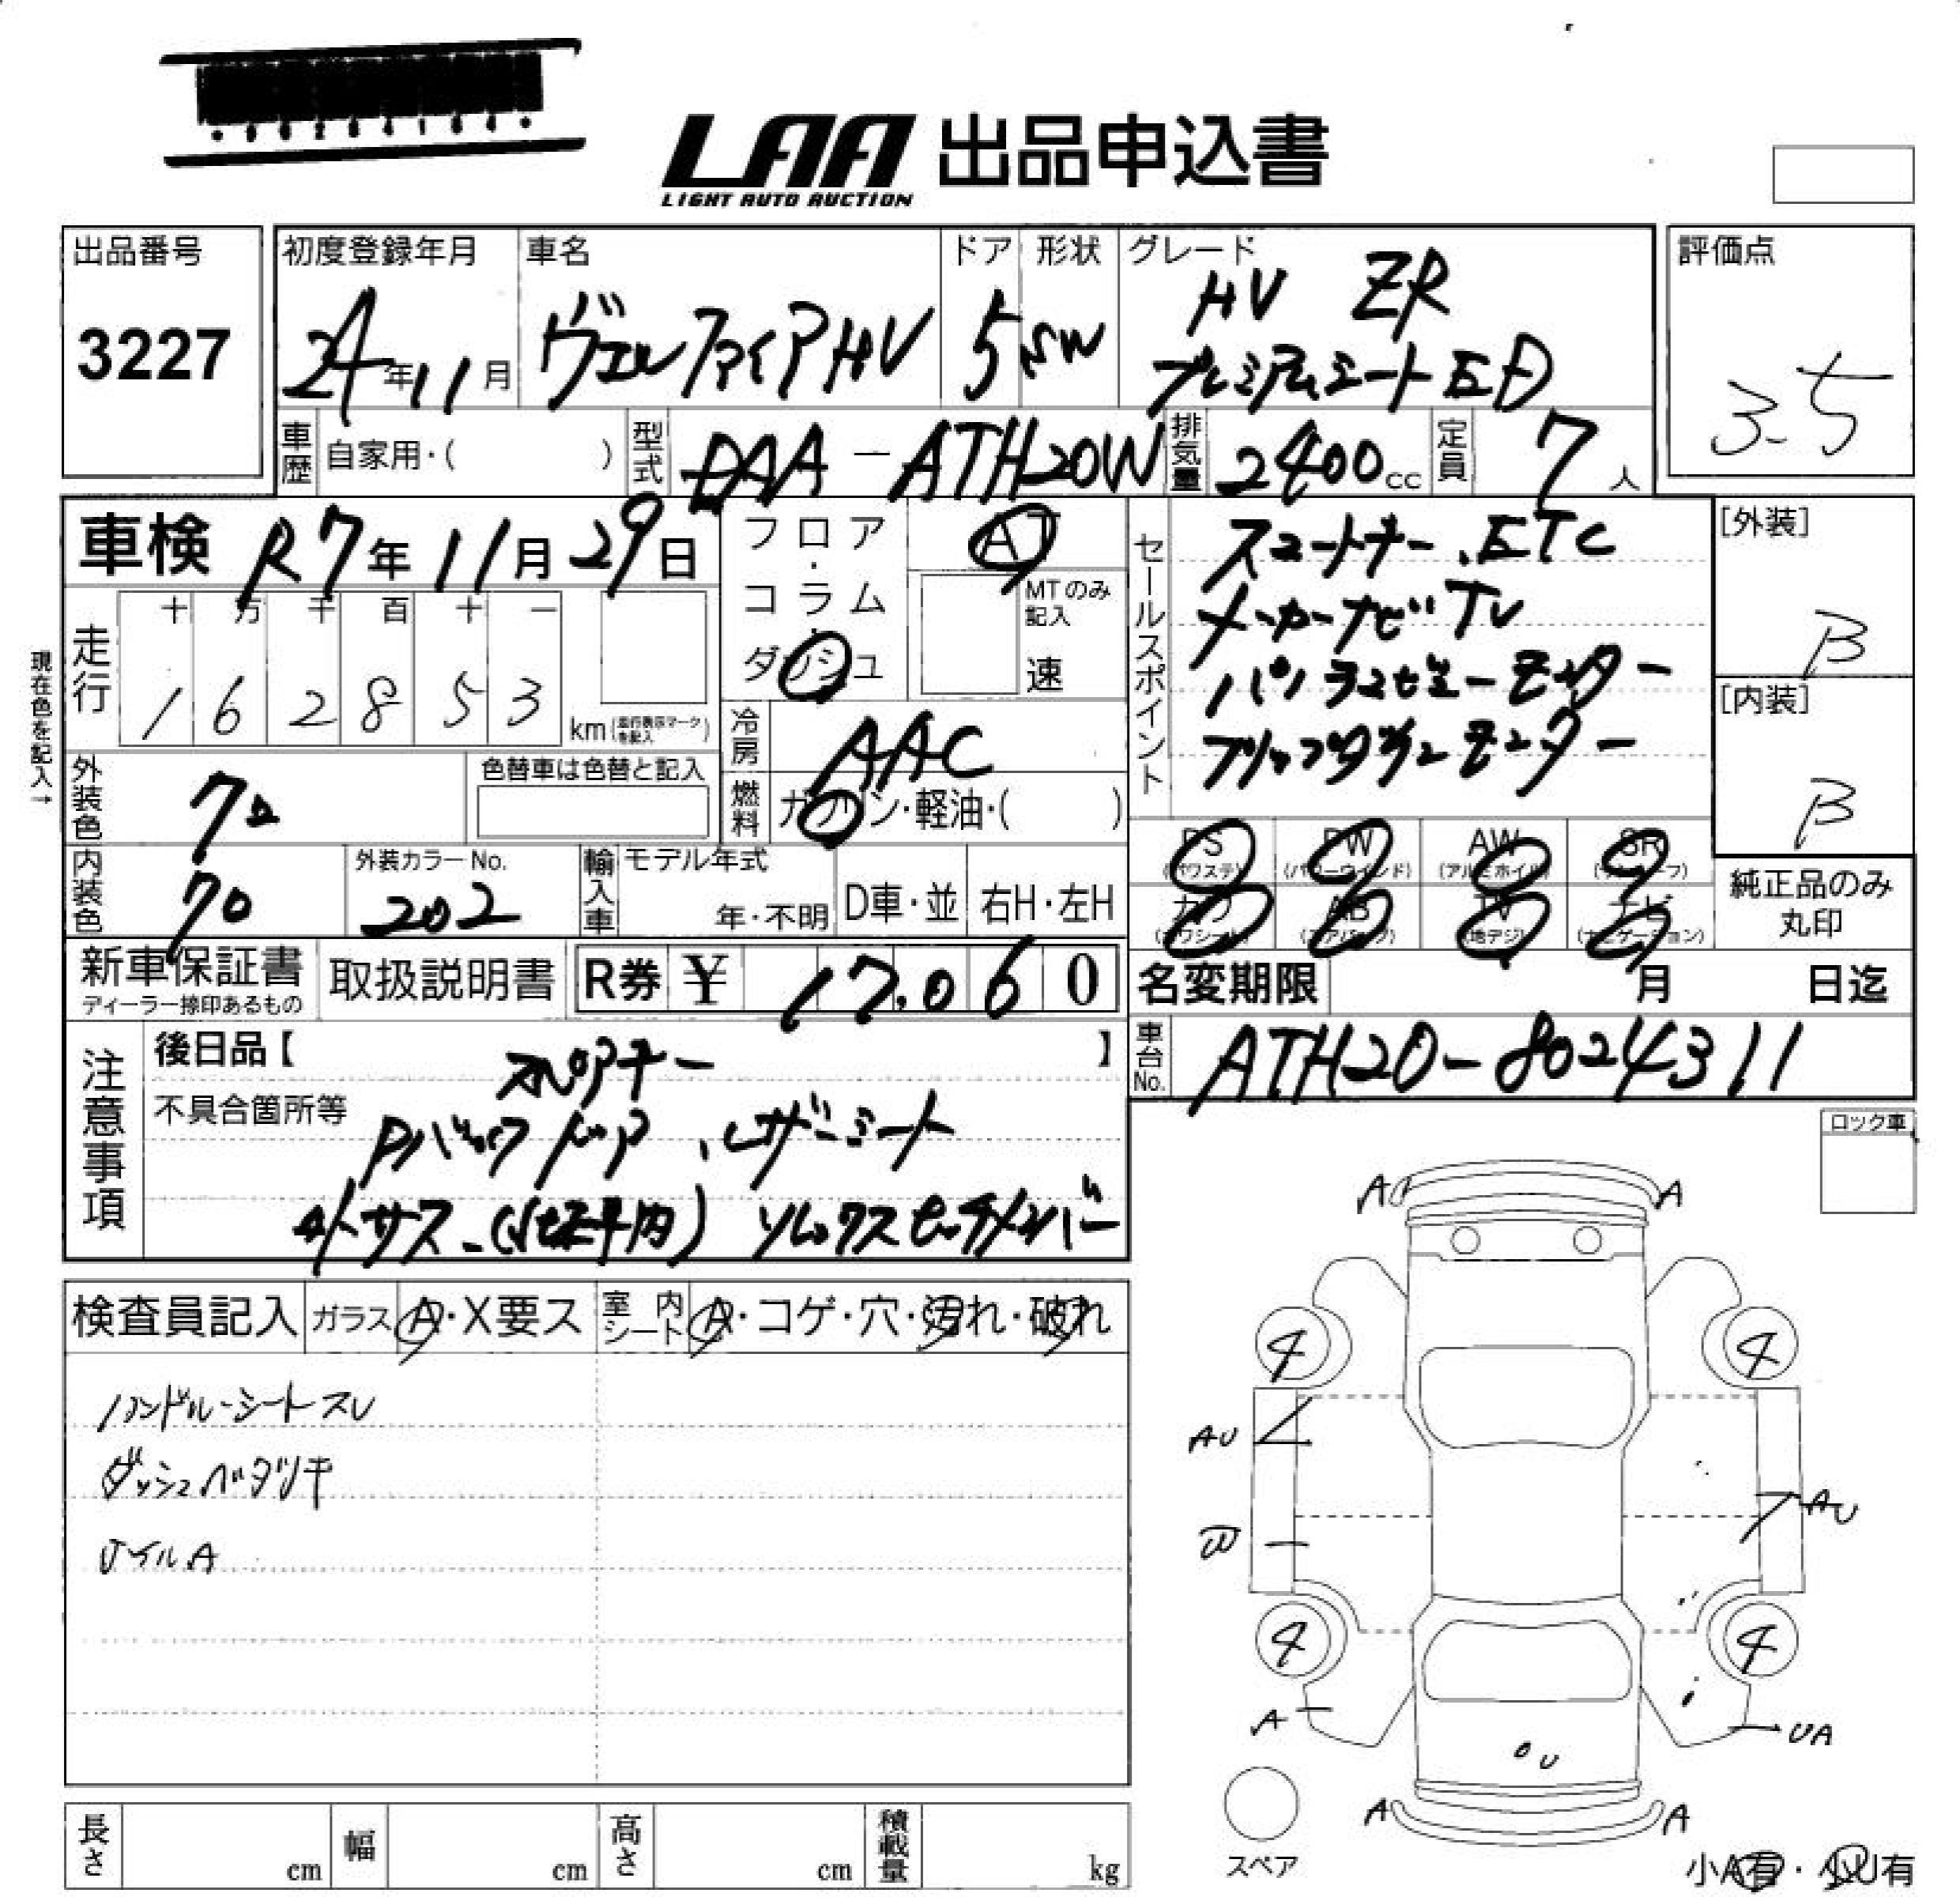 LAA 出品申込書
LIGHT AUTO AUCTION
出品番号
3227
初度登録年月
24年11月
車名
ヴェルファイアHV
ドア
5
形状
SW
グレード
HV ZR
プレミアムシートED
評価点
3.5
車歴
自家用・( )
型式
DAA-ATH20W
排気量
2400cc
定員
7人
車検 R7年11月29日
フロア・コラム・ダッシュ
AT
MTのみ記入
速
セールスポイント
スマートキー、ETC
メーカーナビTV
パノラマビューモニター
フリップダウンモニター
[外装]
B
[内装]
B
現在色を記入→
走行
十 万 千 百 十 一
1 6 2 8 5 3
km(走行表示マークを記入)
冷房
AAC
外装色
70
色替車は色替と記入
燃料
ガソリン・軽油・( )
内装色
70
外装カラーNo.
202
輸入車
モデル年式
年・不明
D車・並
右H・左H
PS
(パワステ)
PW
(パワーウインド)
AW
(アルミホイル)
SR
(サンルーフ)
カワ
(カワシート)
AB
(エアバッグ)
TV
(地デジ)
ナビ
(ナビゲーション)
純正品のみ
丸印
新車保証書
ディーラー捺印あるもの
取扱説明書
R券 ¥ 17,060
名変期限 月 日迄
車台No.
ATH20-8024311
注意事項
後日品【 】
スペアキー
不具合箇所等
Pバックドア、レザーシート
ソレックスセンチメンバー
ロック車
検査員記入
ガラス
A・X要ス
室内シート
A・コゲ・穴・汚れ・破れ
ハンドル・シートスレ
ダッシュベタツキ
ホイルA
A A
4 4
AU
AU
4 4
A
UA
U
A A
スペア
小A有・小U有
長さ cm
幅 cm
高さ cm
積載量 kg